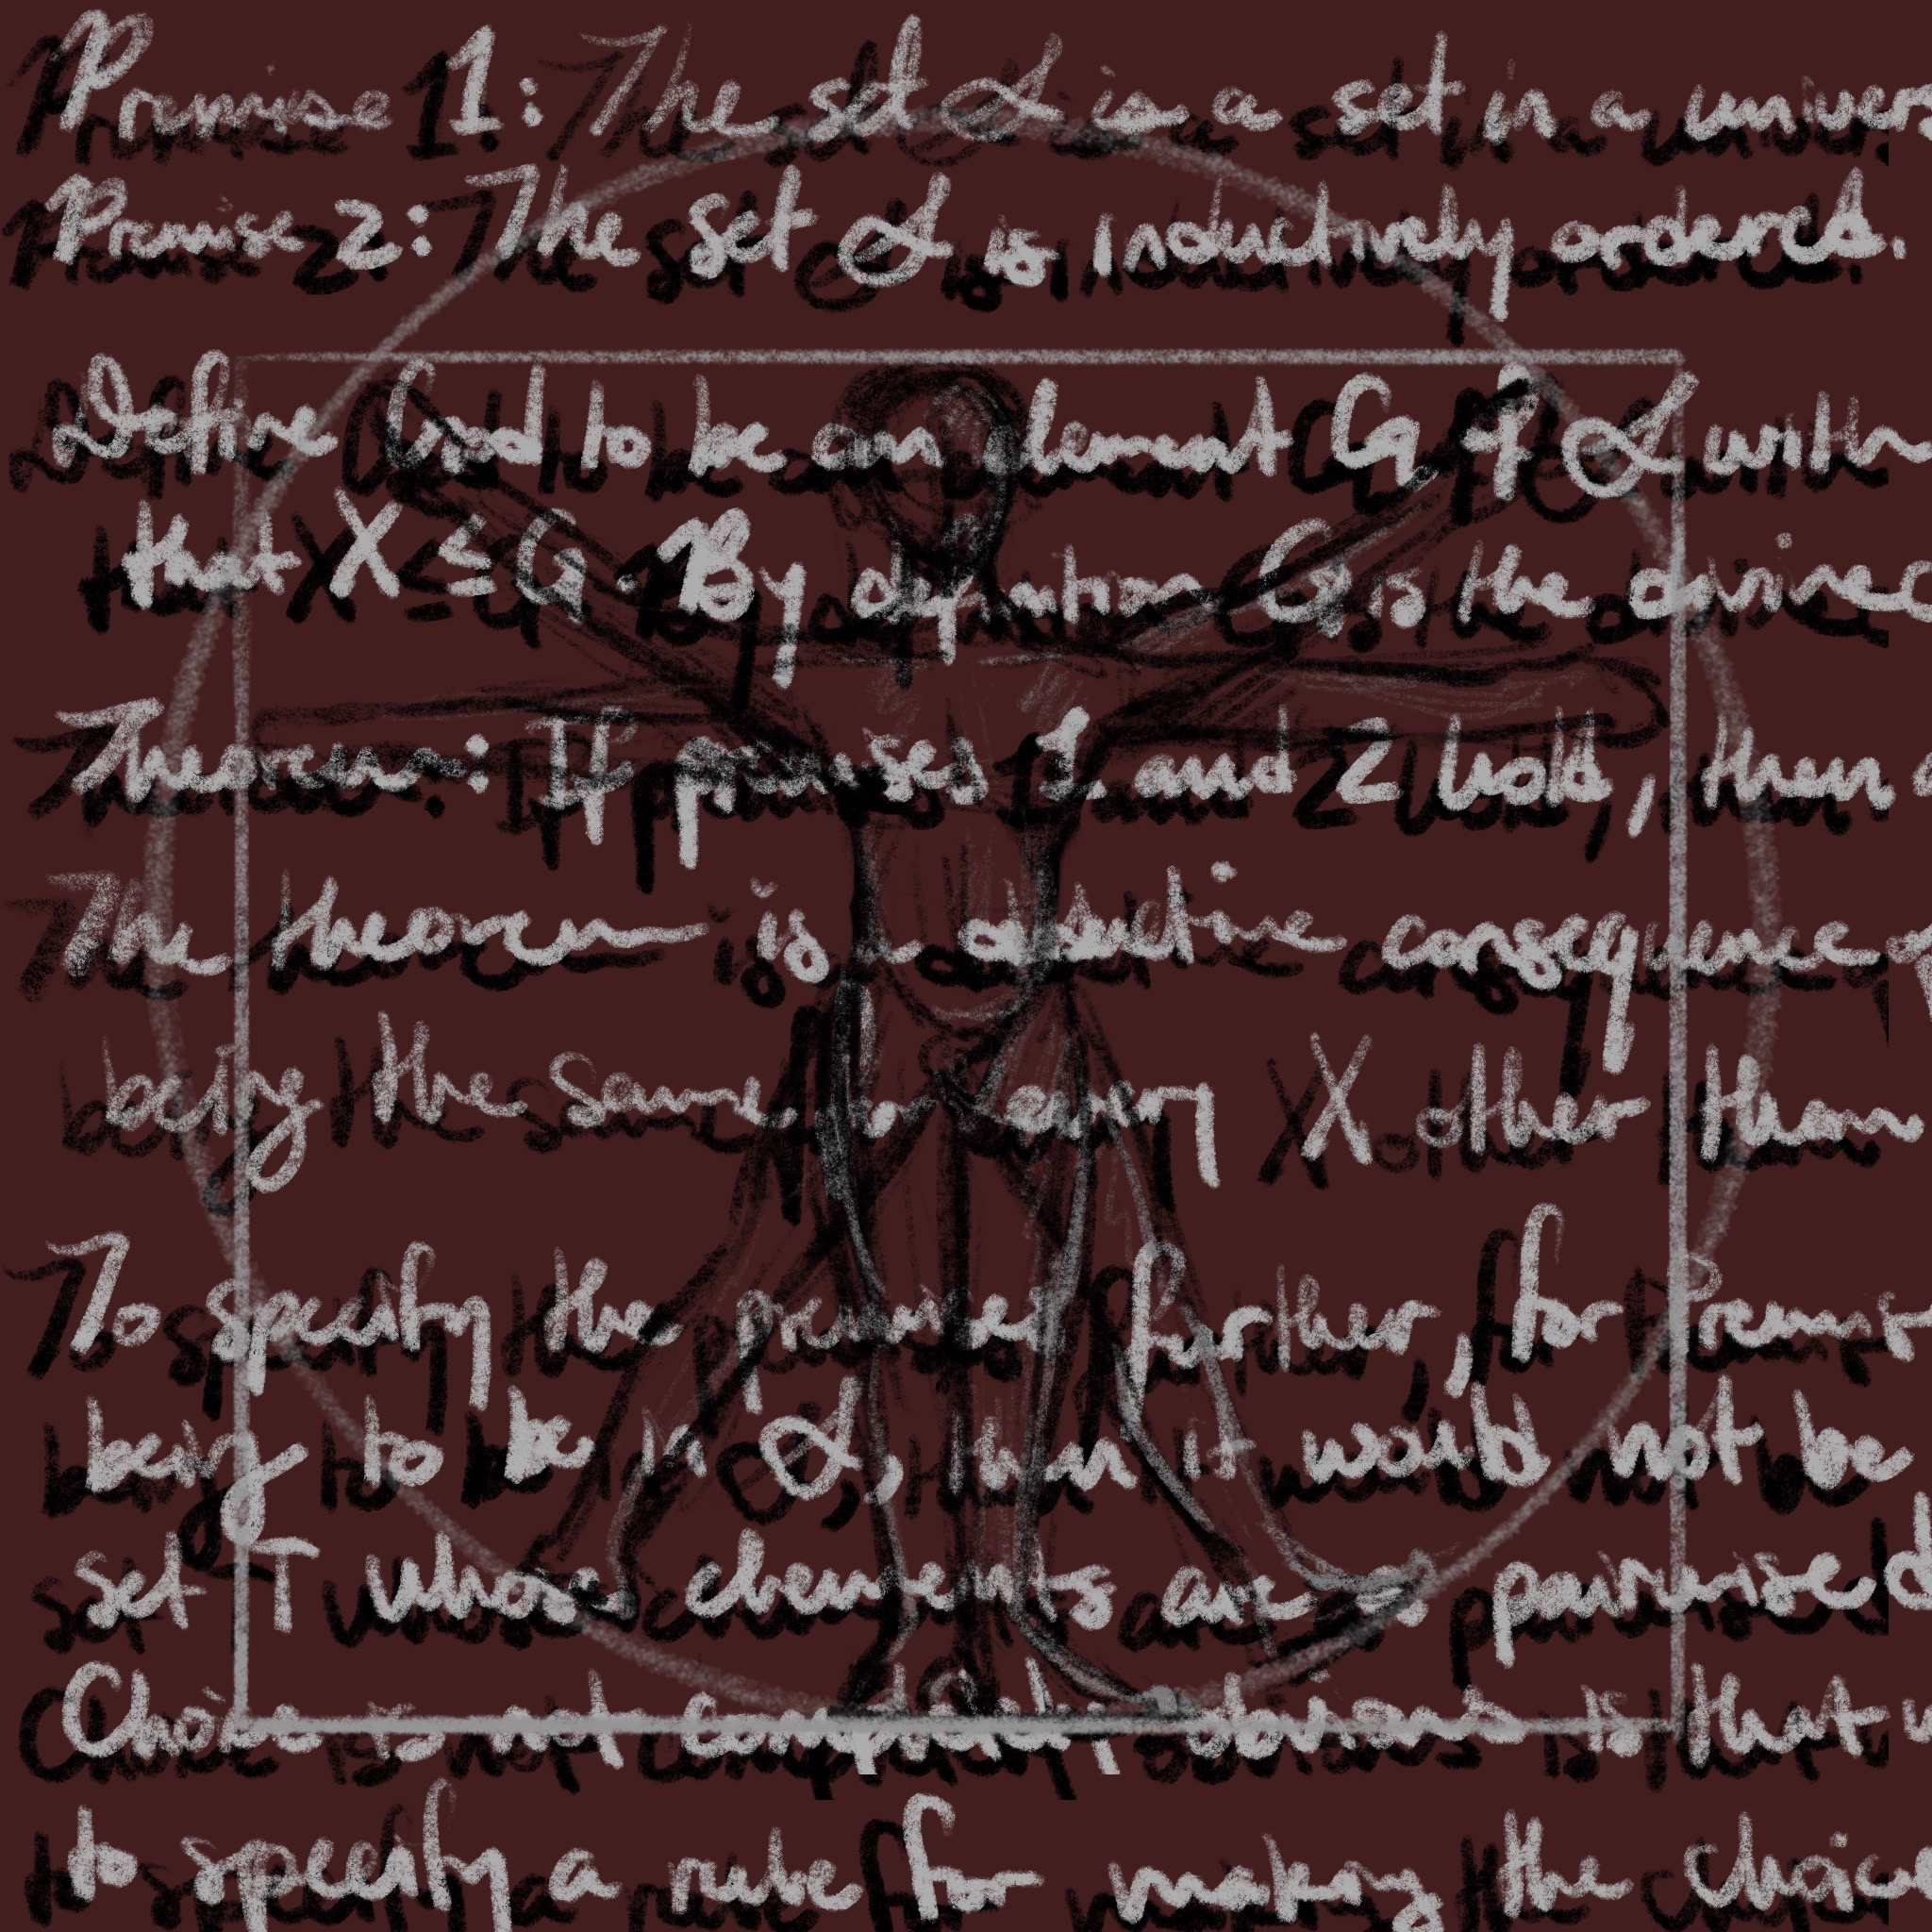 Premise 1: The set L is a set in a univers
Premise 2: The set L is inductively ordered.
Define God to be an element G of L with
that X ≤ G. By definition G is the divinec
Theorem: If premises 1 and 2 hold, then
The theorem is a deductive consequence of
being the same for every X other than
To specify the premises further, for Premis
being to be in L, then it would not be
set T whose elements are pairwise d
Choice is not completely obvious is that w
to specify a rule for making the choice